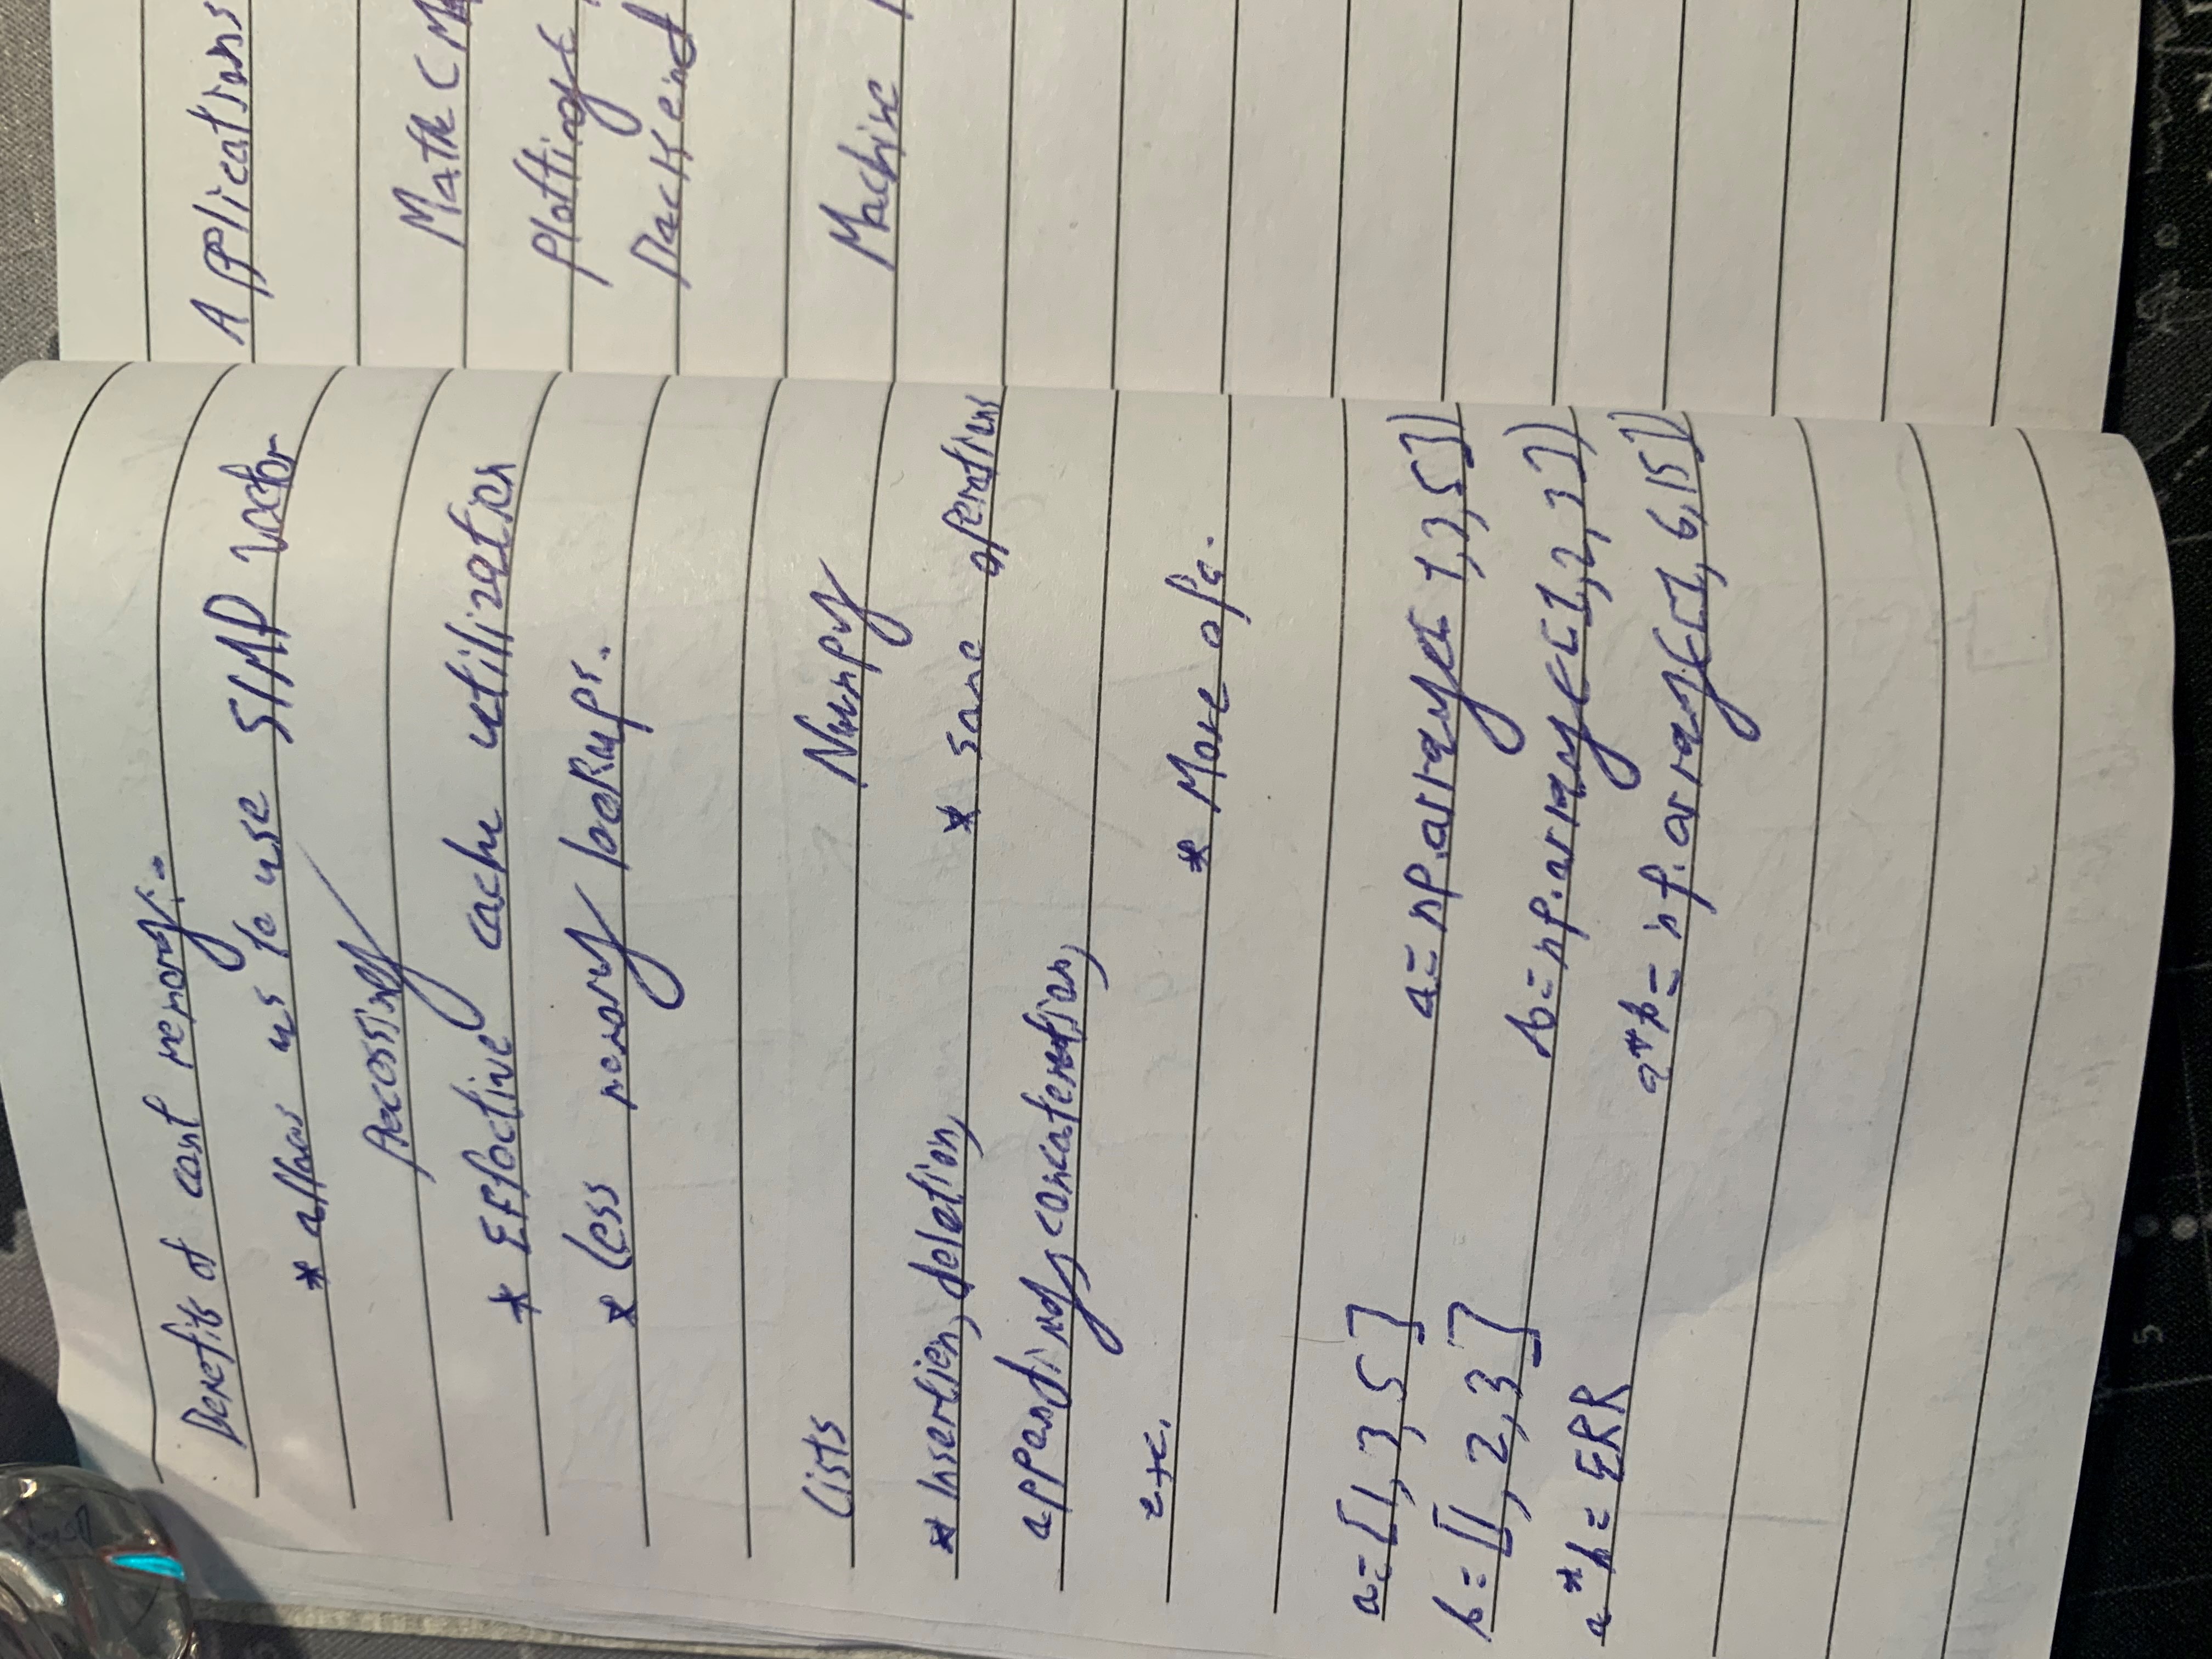 Benefits of cont memory:-
* allow us to use SIMD Vector
Processing
* Effective cache utilization
* Less memory lookups.
Lists Numpy
* Insertion, deletion, * same operations
appending, concatention,
etc. * More ops.
a=[1,3,5] a=np.array([1,3,5])
b=[1,2,3] b=np.array([1,2,3])
a*b=ERR a*b=np.array([1,6,15])
Applications
Math (M
Plotting
Backend
Machine